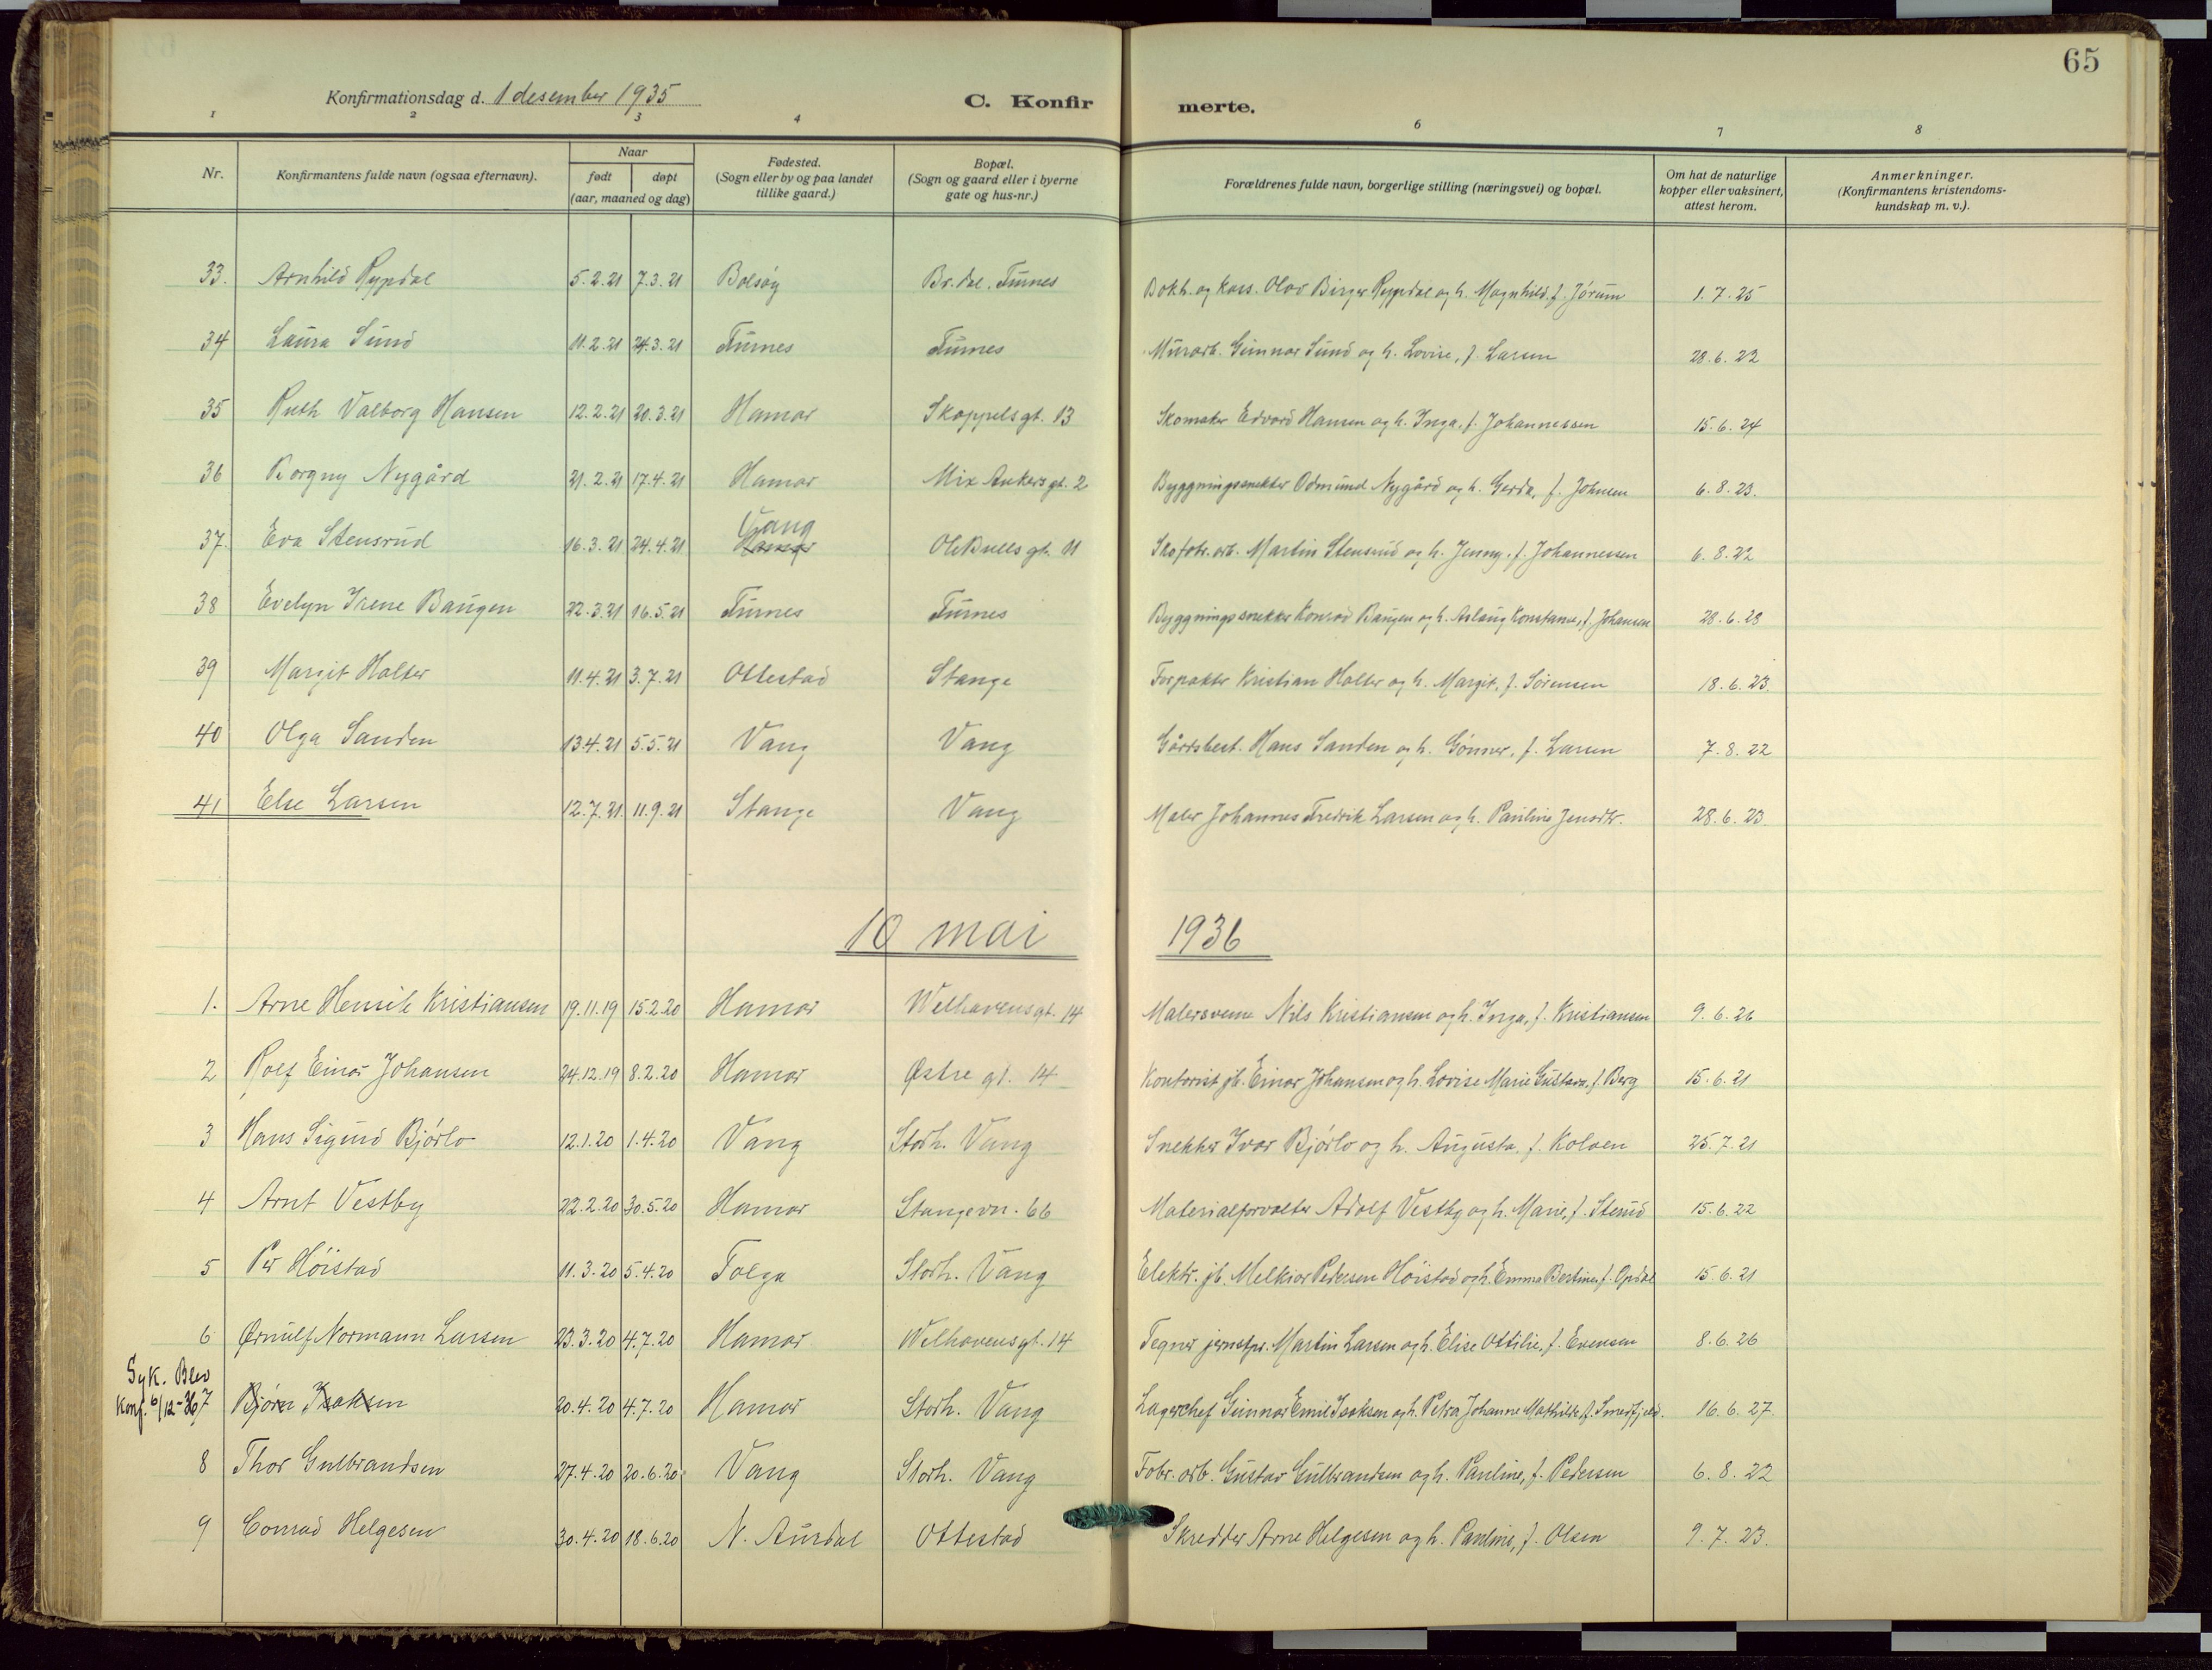 65
Konfirmationsdag d. 1 desember 1935
C. Konfirmerte.
1 2 3 4 6 7 8
Nr.
Konfirmantens fulde navn (ogsaa efternavn).
Naar
født døpt
(aar, maaned og dag)
Fødested.
(Sogn eller by og paa landet
tillike gaard.)
Bopæl.
(Sogn og gaard eller i byerne
gate og hus-nr.)
Forældrenes fulde navn, borgerlige stilling (næringsvei) og bopæl.
Om hat de naturlige
kopper eller vaksinert,
attest herom.
Anmerkninger.
(Konfirmantens kristendoms-
kundskap m. v.).
33. Arnhild Rypdal 5.2.21 7.3.21 Bolsøy Br.dal. Furnes Bokh. og kass. Olav Birger Rypdal og h. Magnhild f. Jørum 1.7.25
34 Laura Sund 11.2.21 24.3.21 Furnes Furnes Murarb. Gunnar Sund og h. Lovise, f. Larsen 28.6.22
35 Ruth Valborg Hansen 12.2.21 20.3.21 Hamar Skappelsgt. 13 Skomaker Edvard Hansen og h. Inga, f. Johannessen 15.6.24
36 Borgny Nygård 21.2.21 17.4.21 Hamar Mix Ankers gt. 2 Byggningssnekker Odmund Nygård og h. Gerda, f. Johnsen 6.8.23.
37. Eva Stensrud 16.3.21 24.4.21 Vang Hamar Ole Bullsgt. 11 Skofabr.arb. Martin Stensrud og h. Jenny, f. Johannessen 6.8.22
38 Evelyn Irene Baugen 22.3.21 16.5.21 Furnes Furnes Byggningssnekker Konrad Baugen og h. Aslaug Konstanse, f. Johansen 28.6.23
39 Margit Halter 11.4.21 3.7.21 Ottestad Stange Forpakter Kristian Halter og h. Margit, f. Sørensen 18.6.23.
40 Olga Sanden 13.4.21 5.5.21 Vang Vang Gårdsbest. Hans Sanden og h. Gunner, f. Larsen 7.8.22
41 Else Larsen 12.7.21. 11.9.21 Stange Vang Maler Johannes Fredrik Larsen og h. Pauline Jensdtr. 28.6.23.
10 mai 1936
1. Arne Henrik Kristiansen 19.11.19 15.2.20 Hamar Welhavensgt. 14 Malersvenn Nils Kristiansen og h. Inga, f. Kristiansen 9.6.26
2 Rolf Einar Johansen 24.12.19 8.2.20 Hamar Østre gt. 14 Kontorist jb. Einar Johansen og h. Lovise Marie Gustava, f. Berg 15.6.21
3 Hans Sigurd Bjørlo 12.1.20 1.4.20 Vang Storh. Vang Snekker Ivar Bjørlo og h. Augusta, f. Kolven 25.7.21
4 Arnt Vestby 22.2.20 30.5.20 Hamar Stangevn. 66 Materialforvalter Adolf Vestby og h. Marie, f. Stenud 15.6.22
5 Per Höistad 11.3.20 5.4.20 Tolga Storh. Vang Elektr. jb. Melkior Pedersen Höistad og h. Emma Bertine, f. Opdal 15.6.21
6 Ørnulf Normann Larsen 23.3.20 4.7.20 Hamar Welhavensgt. 14 Tegner jernstøp. Martin Larsen og h. Elise Ottilie, f. Evensen 8.6.26
Syk. Blev
konf. 6/12-36 7 Bjørn Isaksen 20.4.20 4.7.20 Hamar Storh. Vang Lagerchef Gunnar Emil Isaksen og h. Petra Johanne Mathilde f. Smedfjeld. 16.6.27.
8 Thor Gulbrandsen 27.4.20 20.6.20 Vang Storh. Vang Fabr. arb. Gustav Gulbrandsen og h. Pauline, f. Pedersen 6.8.22
9 Conrad Helgesen 30.4.20 18.6.20 N. Aurdal Ottestad Skredder Arne Helgesen og h. Pauline, f. Olsen 9.7.23.